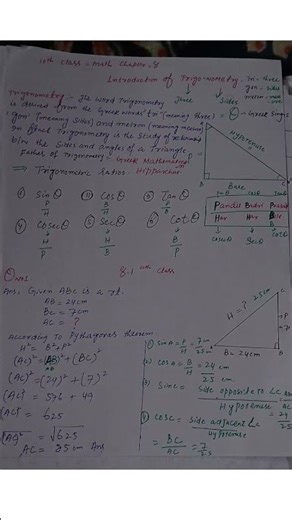 10th class - math Chapter . 8
Introduction of Trigonometry.
Trigonometry - The word Trigonometry
is derived from the Greek words 'tri' (meaning three)
gon' (meaning sides) and metron (meaning measure)
Trigonometry is the study of relationship
b/w the sides and angles of a Triangle.
Father of Trigonometry - Greek Mathematician
⇒ Trigonometric Ratios. Hipparchus
Three
Sides
θ → Greek
Hypotenuse
Base
B
① sin θ
P
H
② cos θ
B
H
③ Tan θ
P
B
④ cosec θ
H
P
⑤ sec θ
H
B
⑥ cot θ
B
P
Pandit Badri
Har Har
cosec θ sec θ cot θ
Q No 1
8.1 class
Ans. Given ABC is a rt.
AB = 24 cm
BC = 7 cm
AC = ?
According to Pythagoras theorem
H² = B² + P²
(AC)² = (AB)² + (BC)²
(AC)² = (24)² + (7)²
(AC)² = 576 + 49
(AC)² = 625
√(AC)² = √625
AC = 25 cm Ans
H = ? 25cm
C
P
B = 24 cm
B
(i) sin A = P/H = 7 cm/25 cm
cos A = B/H = 24 cm/25 cm
sin C = Side opposite to ∠C/Hypotenuse = 24/25
cos C = Side adjacent ∠C/Hypotenuse
= BC/AC = 7/25